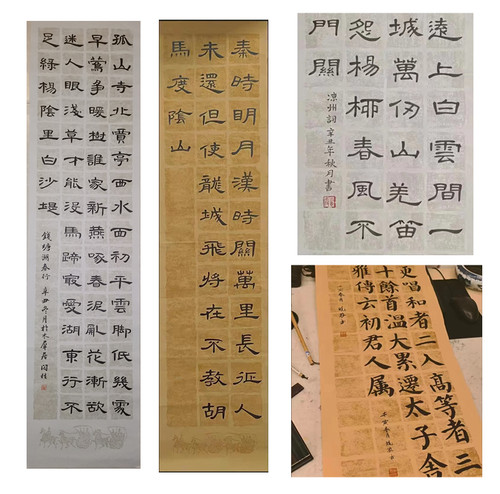 孤山寺北賈亭西水面初平雲腳低幾處
早鶯爭暖樹誰家新燕啄春泥亂花漸欲
迷人眼淺草才能沒馬蹄最愛湖東行不
足綠楊陰里白沙堤
錢塘湖春行
秦時明月漢時關萬里長征人
未還但使龍城飛將在不教胡
馬度陰山
遠上白雲間一
城萬仞山羌笛
怨楊柳春風不
門關
涼州詞辛丑年秋月書
更唱和者二入高等者三
十餘首溫大累遷太子舍
雅傳玄初君人属